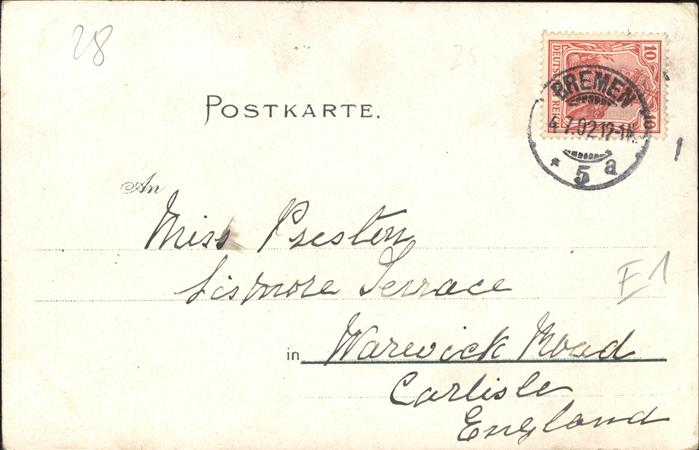 28
25
10
DEUTSCHES REICH
BREMEN
4.7.02.12-1N.
* 5 a
1
POSTKARTE.
An
Miss Preston
Lismore Terrace
E1
in Warwick Road
Carlisle
England